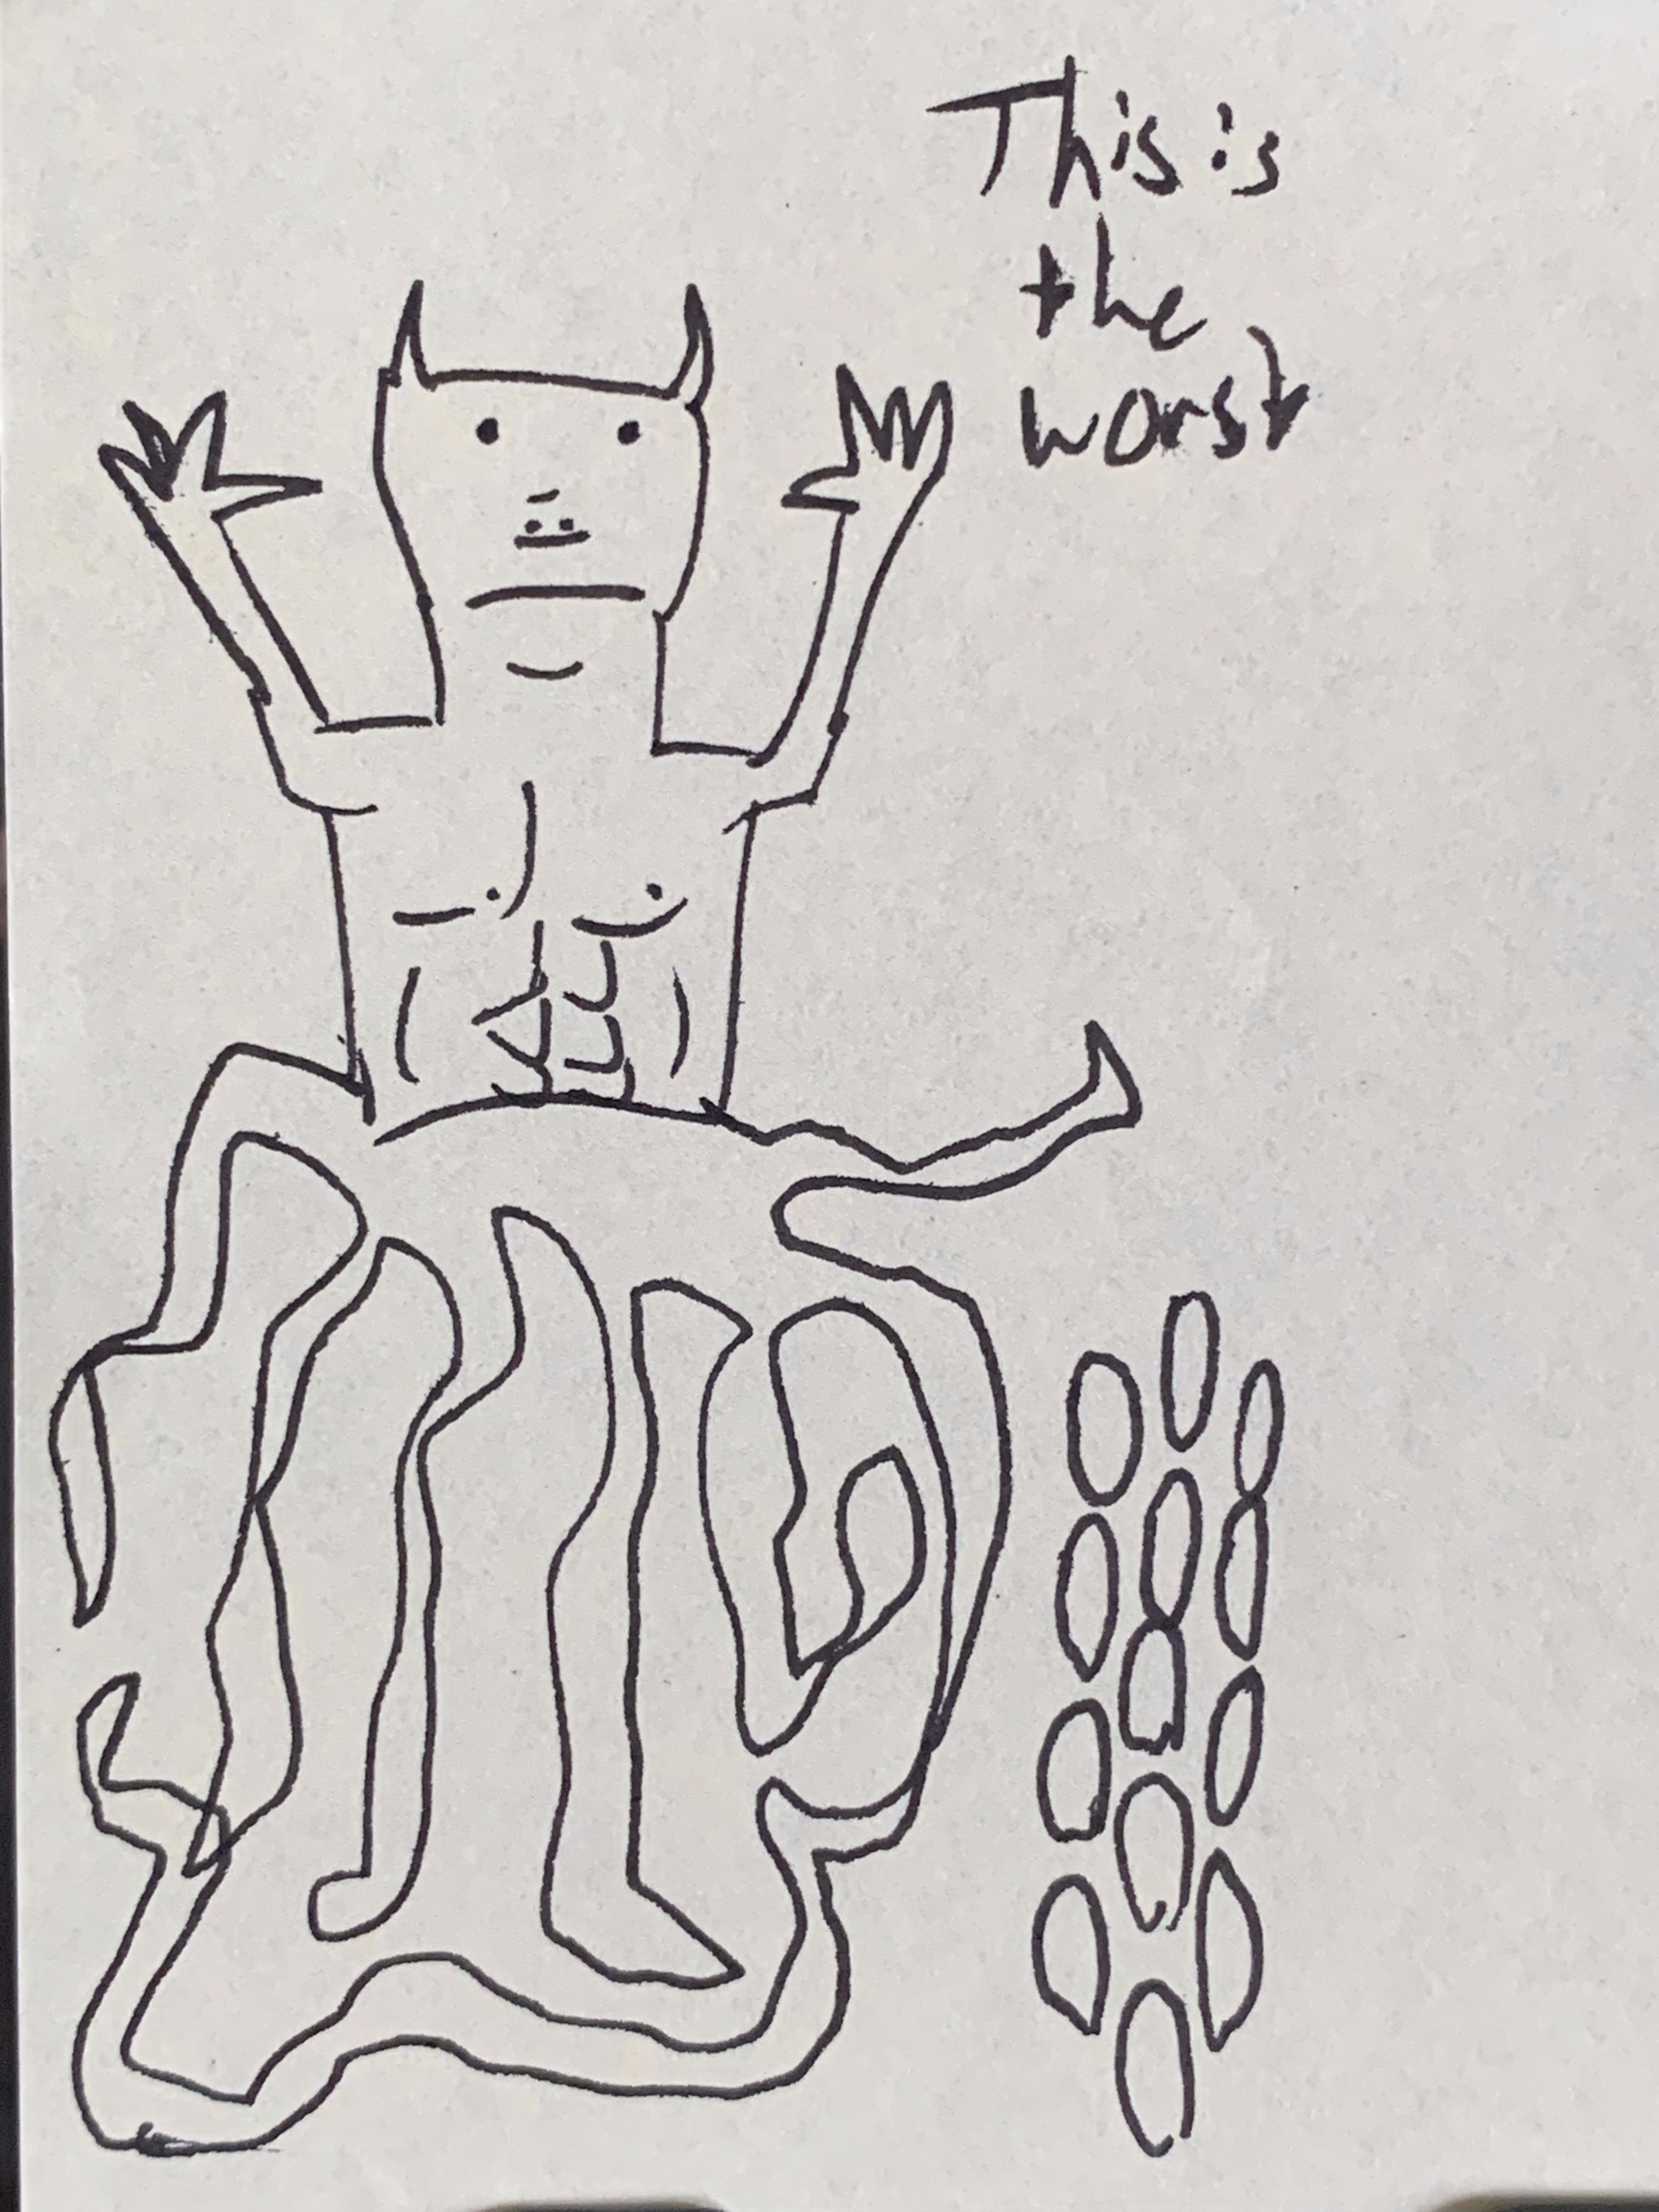 This is
the
worst